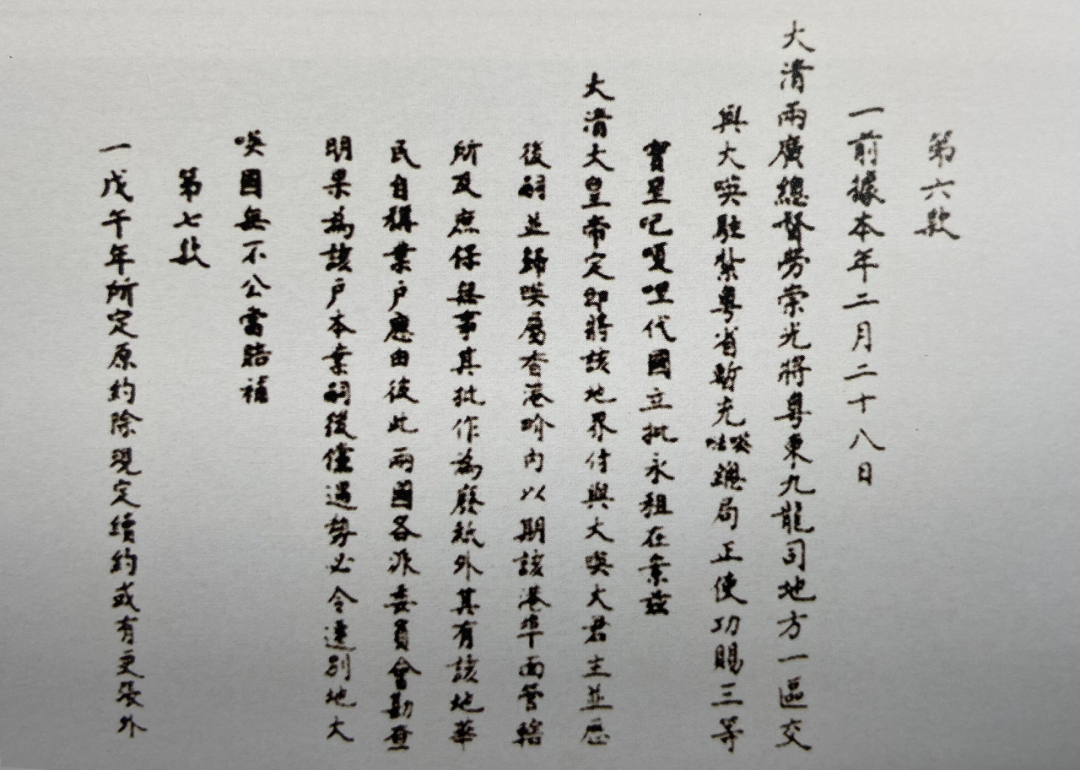 第六款
一前據本年二月二十八日
大清兩廣總督勞崇光將粵東九龍司地方一區交
與大㖶駐紮粵省暫充㖶㕵總局正使功賜三等
寶星吧嗄哩代國立批永租在案茲
大清大皇帝定即將該地界付與大㖶大君主並歷
後嗣並歸㖶屬香港界內以期該港埠面管轄
所及庶保無事其批作為廢紙外其有該地華
民自稱業戶應由彼此兩國各派委員會勘查
明果為該戶本業嗣後儻遇勢必令遷別地大
㖶國無不公當賠補
第七款
一戊午年所定原約除現定續約或有更張外